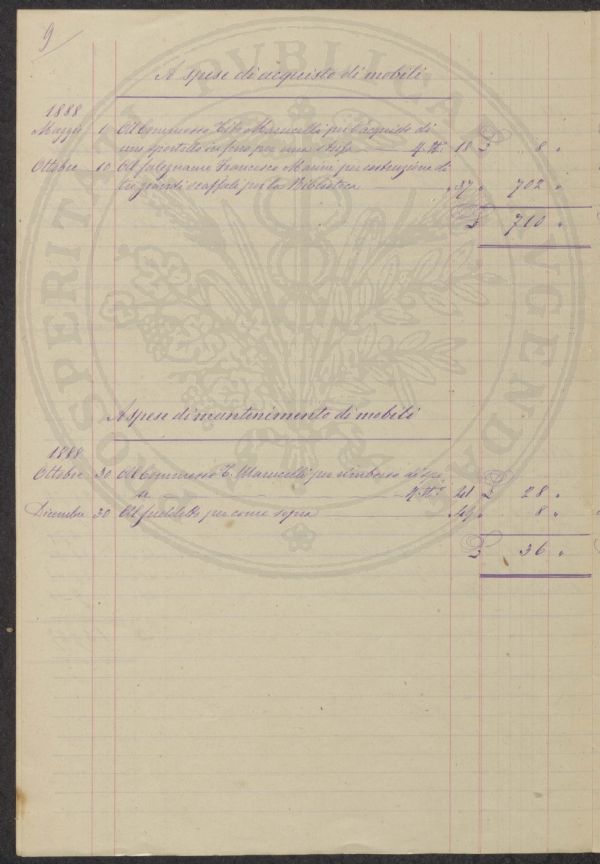 9
A spese di acquisto di mobili
1888
Maggio 6 Al Commesso Tito Marucelli per l'acquisto di
uno sportello in ferro per una stufa M.to 18 £ 8 "
Ottobre 10 Al falegname Francesco Marini per costruzione di
tre grandi scaffali per la Biblioteca " 37 " 702 "
£ 710 "
A spese di mantenimento di mobili
1888
Ottobre 30 Al Commesso T. Marucelli per rimborso di spe
a M.to 41 £ 28 "
Dicembre 30 Al suddetto per come sopra " " 8 "
£ 36 "
PROSPERITATI PVBLICAE AVGENDAE